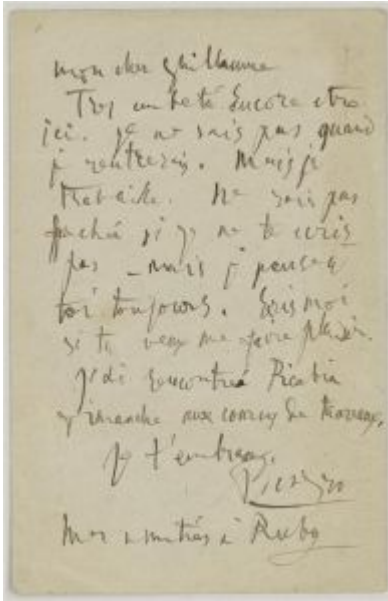 mon cher Guillaume
Trop embeté encore etre
ici. je ne sais pas quand
je rentrerai. Mais je
travaille. Ne sois pas
faché si je ne te ecris
pas _ mais je pense a
toi toujours. Ecris moi
si tu veux me faire plaisir.
j'ai rencontré Picabia
dimanche aux courses de taureaux.
je t'embrasse.
Picasso
Mes amitiés a Ruby